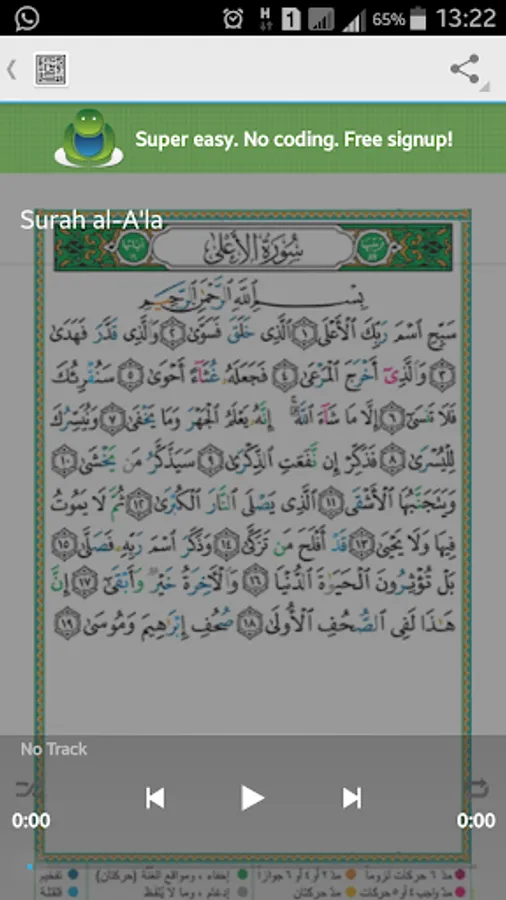 H 1 65% 13:22
Super easy. No coding. Free signup!
Surah al-A'la
سُورَةُ الأَعْلَىٰ
بِسْمِ اللَّهِ الرَّحْمَٰنِ الرَّحِيمِ
سَبِّحِ اسْمَ رَبِّكَ الْأَعْلَى ١ الَّذِي خَلَقَ فَسَوَّىٰ ٢ وَالَّذِي قَدَّرَ فَهَدَىٰ
٣ وَالَّذِي أَخْرَجَ الْمَرْعَىٰ ٤ فَجَعَلَهُ غُثَاءً أَحْوَىٰ ٥ سَنُقْرِئُكَ
فَلَا تَنسَىٰ ٦ إِلَّا مَا شَاءَ اللَّهُ ۚ إِنَّهُ يَعْلَمُ الْجَهْرَ وَمَا يَخْفَىٰ ٧ وَنُيَسِّرُكَ
لِلْيُسْرَىٰ ٨ فَذَكِّرْ إِن نَّفَعَتِ الذِّكْرَىٰ ٩ سَيَذَّكَّرُ مَن يَخْشَىٰ ١٠
وَيَتَجَنَّبُهَا الْأَشْقَى ١١ الَّذِي يَصْلَى النَّارَ الْكُبْرَىٰ ١٢ ثُمَّ لَا يَمُوتُ
فِيهَا وَلَا يَحْيَىٰ ١٣ قَدْ أَفْلَحَ مَن تَزَكَّىٰ ١٤ وَذَكَرَ اسْمَ رَبِّهِ فَصَلَّىٰ ١٥
بَلْ تُؤْثِرُونَ الْحَيَاةَ الدُّنْيَا ١٦ وَالْآخِرَةُ خَيْرٌ وَأَبْقَىٰ ١٧ إِنَّ
هَٰذَا لَفِي الصُّحُفِ الْأُولَىٰ ١٨ صُحُفِ إِبْرَاهِيمَ وَمُوسَىٰ ١٩
No Track
0:00 0:00
مدّ ٦ حركات لزوماً مدّ ٢ أو ٤ أو ٦ جوازاً إخفاء، ومواقع الغنّة (حركتان) تفخيم
مدّ واجب ٤ أو ٥ حركات مدّ حركتان إدغام، وما لا يُلفظ قلقلة